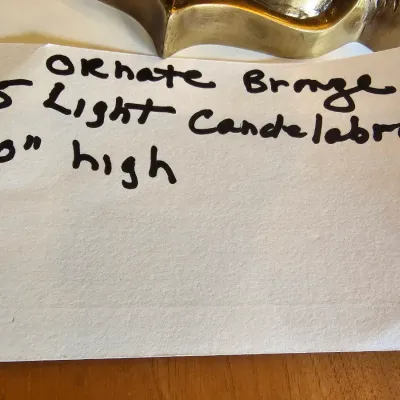 ORnate Bronze
5 Light Candelabr
0" high